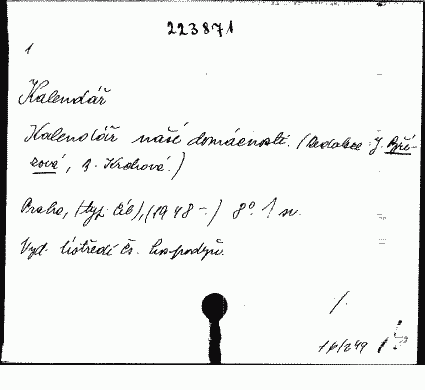 223871
1
Kalendář
Kalendář naší domácnosti. (Redakce: J. Bře-
zová, B. Krohová.)
Praha, (typ. Čil), (1948 - .) 8° 1 sv.
Vyd. Ústředí čs. hospodyň.
/.